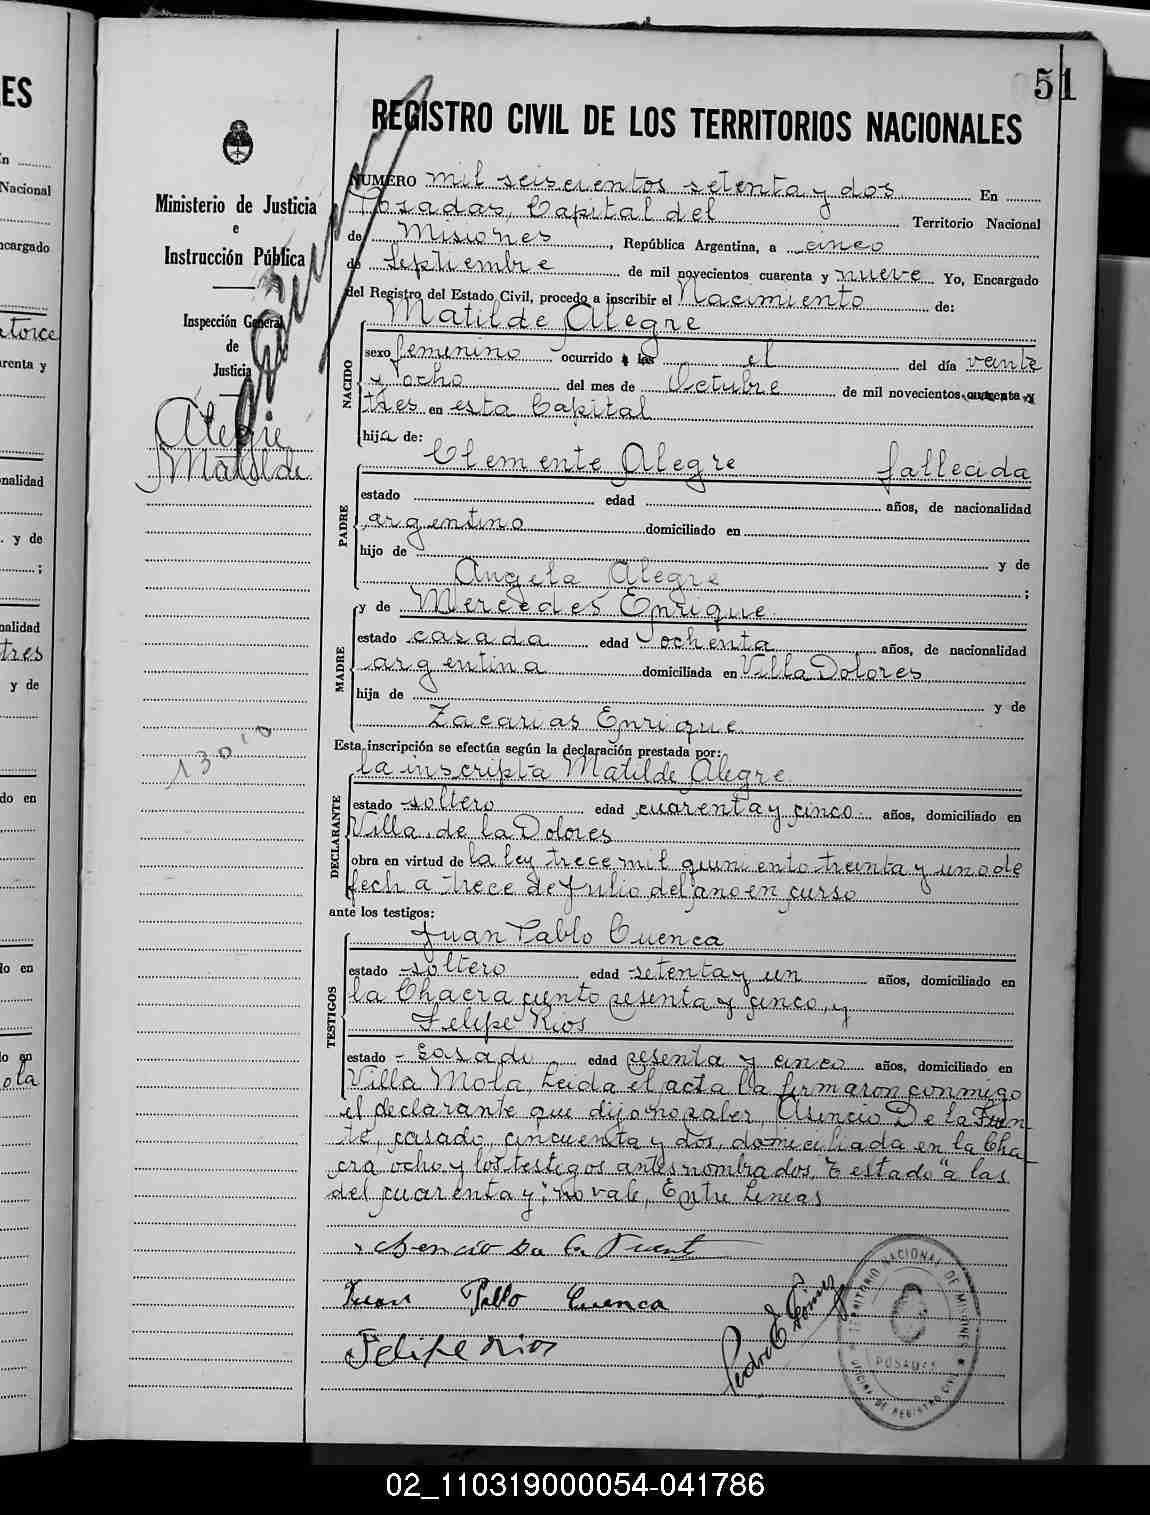 51
REGISTRO CIVIL DE LOS TERRITORIOS NACIONALES
NUMERO mil seiscientos setenta y dos. En
Posadas, Capital del Territorio Nacional
de Misiones, República Argentina, a cinco
de Septiembre de mil novecientos cuarenta y nueve Yo, Encargado
del Registro del Estado Civil, procedo a inscribir el Nacimiento de:
Matilde Alegre
NACIDO
sexo femenino ocurrido a las el del día veinte
y ocho del mes de Octubre de mil novecientos cuarenta y
tres en esta Capital
hija de:
Clemente Alegre fallecida
PADRE
estado edad años, de nacionalidad
argentino domiciliado en
hijo de y de
Angela Alegre ;
MADRE
y de Mercedes Enrique
estado casada edad ochenta años, de nacionalidad
argentina domiciliada en Villa Dolores
hija de y de
Zacarias Enrique
Esta inscripción se efectúa según la declaración prestada por:
la inscripta Matilde Alegre
DECLARANTE
estado soltero edad cuarenta y cinco años, domiciliado en
Villa de la Dolores
obra en virtud de la ley trece mil quiniento treinta y uno de
fecha trece de Julio del ano en curso
ante los testigos:
Juan Pablo Cuenca
TESTIGOS
estado soltero edad setenta y un años, domiciliado en
la Chacra ciento sesenta y cinco, y
Felipe Rios
estado casado edad sesenta y cinco años, domiciliado en
Villa Mola, Leida el acta la firmaron conmigo
el declarante que dijo no saber, Asencio De la Fuen-
te, casado, cincuenta y dos, domiciliada en la Cha-
cra ocho y los testigos antes nombrados, E estado "a las
del cuarenta y; no vale, Entre Lineas
Asencio De la Fuente
Juan Pablo Cuenca
Felipe Rios
Pedro E Gómez
TERRITORIO NACIONAL DE MISIONES
POSADAS
OFICINA DE REGISTRO CIVIL
Ministerio de Justicia
e
Instrucción Pública
Inspección General
de
Justicia
Alegre
Matilde
ES
n
Nacional
ncargado
torce
renta y
nalidad
. y de
;
nalidad
tres
y de
do en
do en
do en
ola
02_110319000054-041786